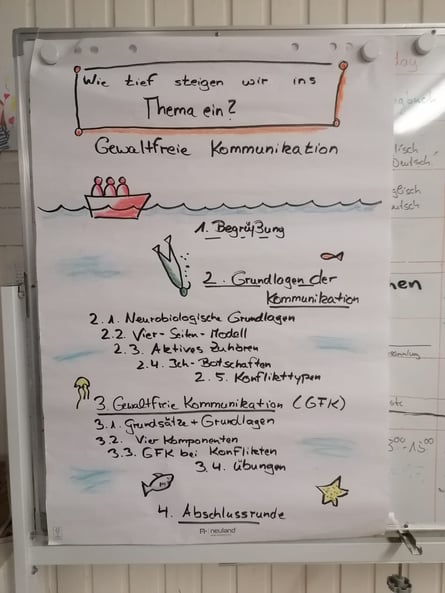 Wie tief steigen wir ins
Thema ein?
Gewaltfreie Kommunikation
1. Begrüßung
2. Grundlagen der
Kommunikation
2.1. Neurobiologische Grundlagen
2.2. Vier-Seiten-Modell
2.3. Aktives Zuhören
2.4. Ich-Botschaften
2.5. Konflikttypen
3. Gewaltfreie Kommunikation (GFK)
3.1. Grundsätze + Grundlagen
3.2. Vier Komponenten
3.3. GFK bei Konflikten
3.4. Übungen
4. Abschlussrunde
neuland